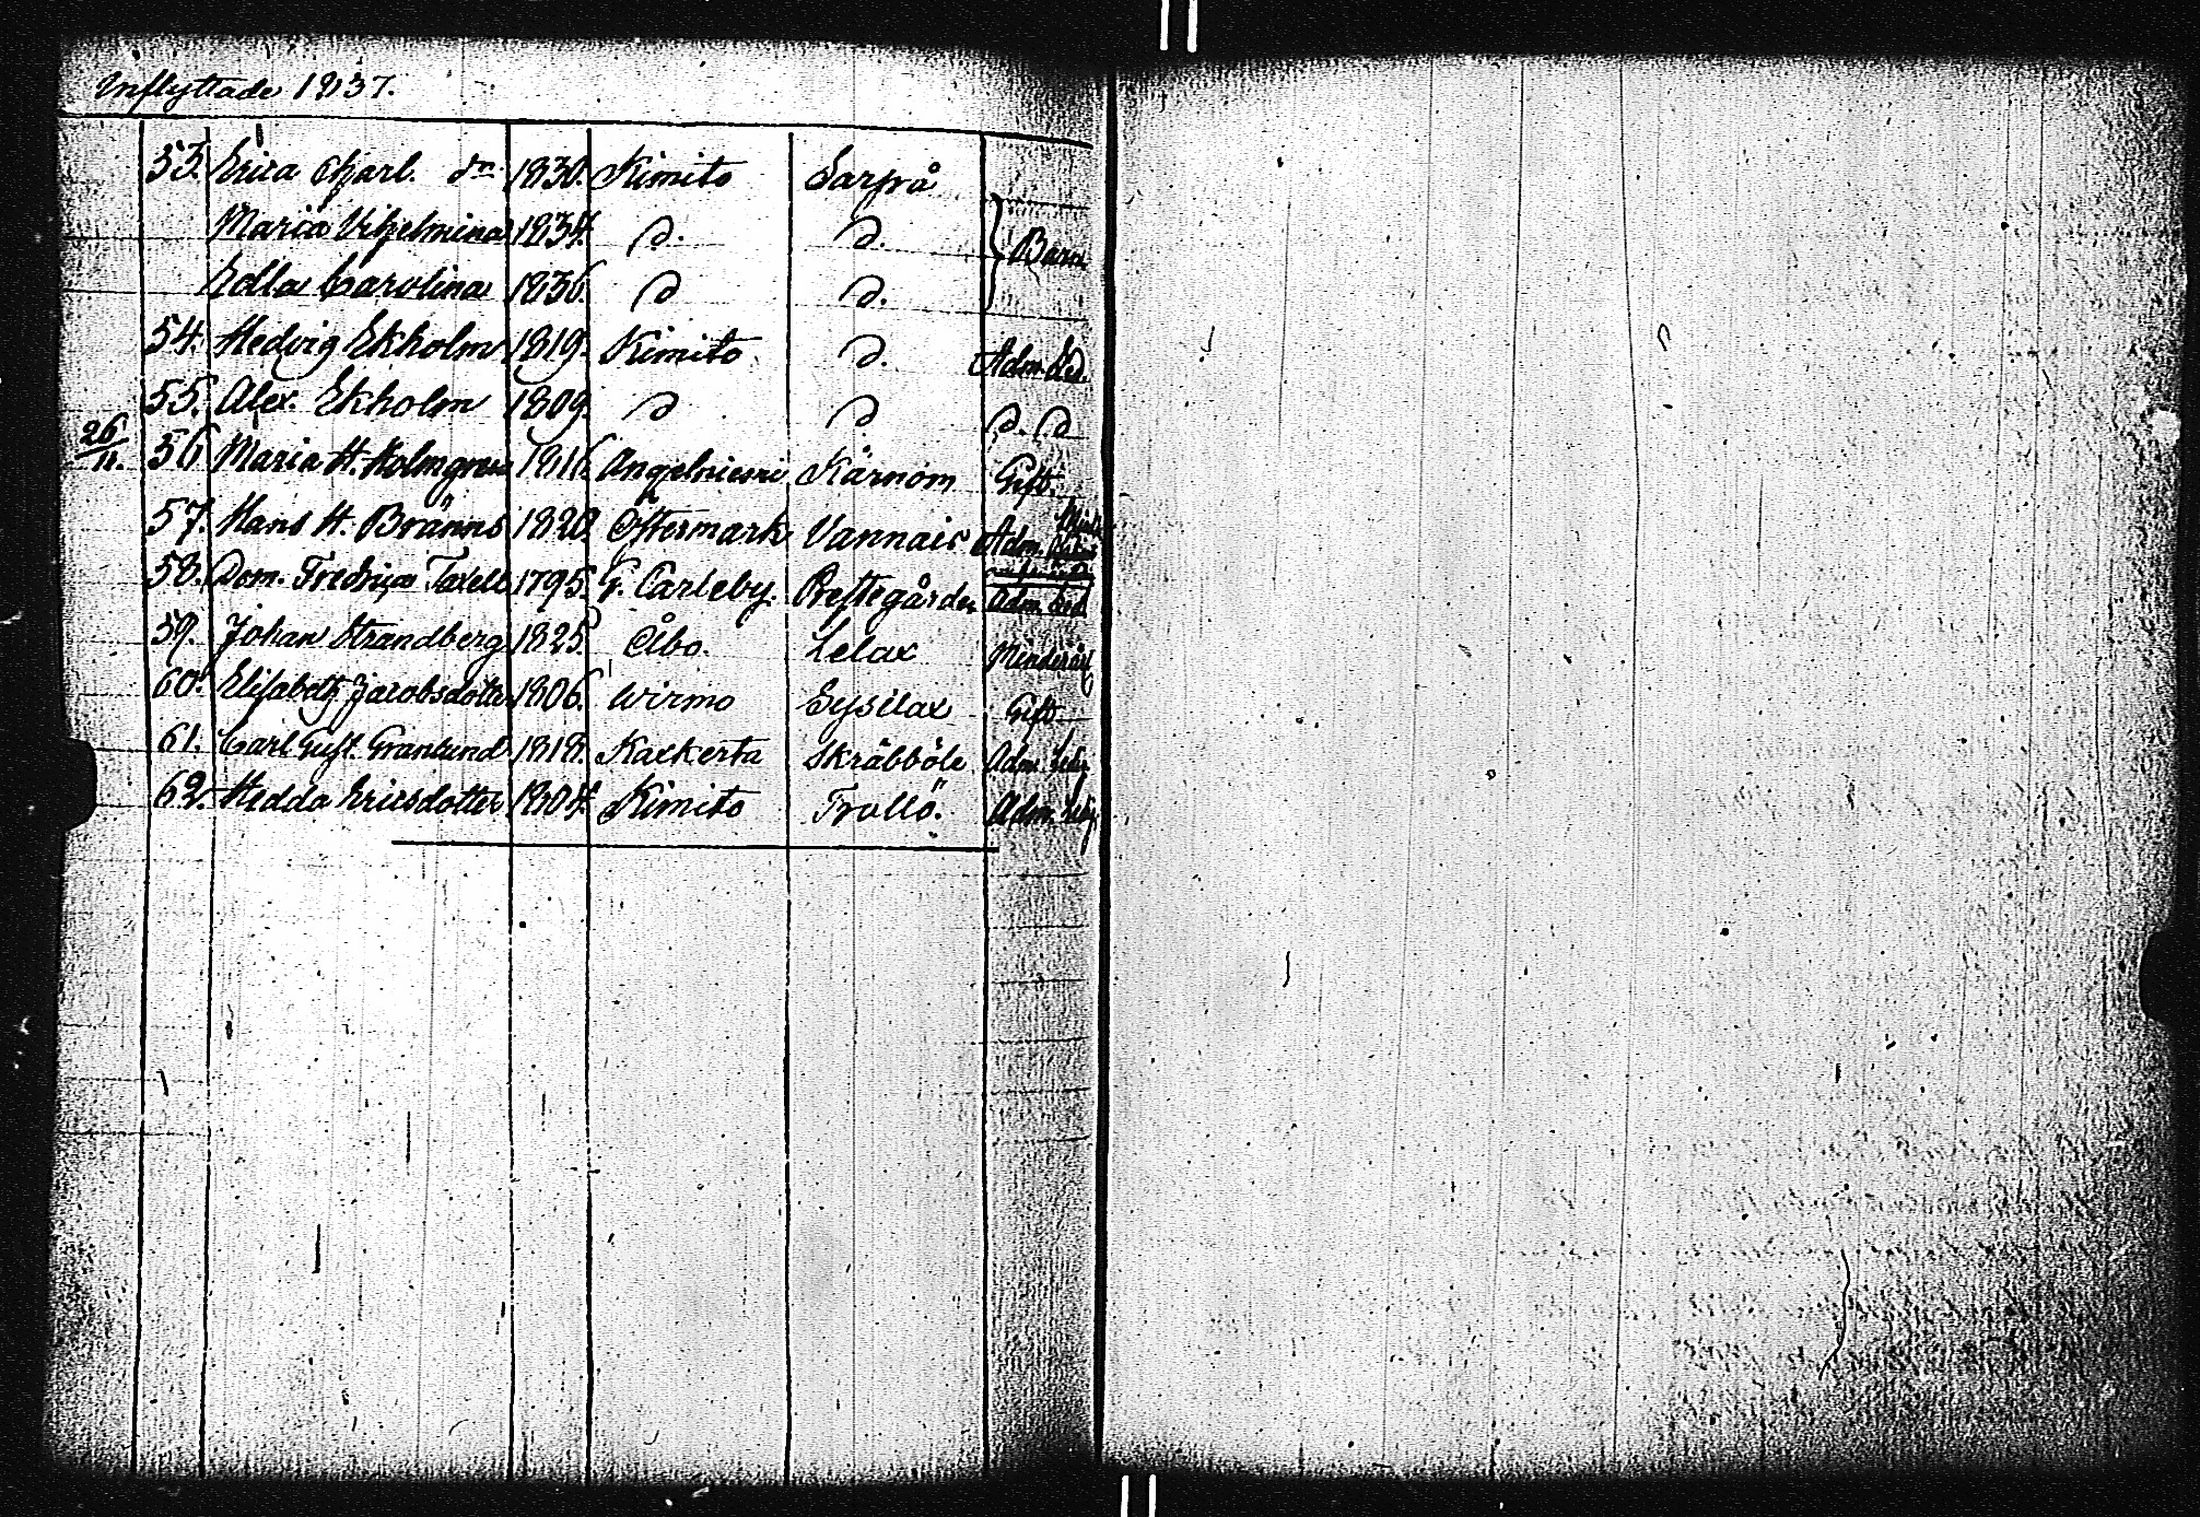 Inflyttade 1837.
53. Erica Charl. dr 1830. Kimito Sarpå
Maria Vilhelmina 1834. D. D. } Barn
Edla Carolina 1836. D D.
54. Hedvig Ekholm 1819. Kimito D. Adm. Led.
55. Alex. Ekholm 1809. D D D. D
26/11. 56 Maria H. Holmgren 1816. Angelniemi Kärnom Gift.
57. Hans H. Bränns 1820 Östermark Vannais Adm.
58. Dem. Fredrica Taxell 1795. G. Carleby. Prestegården Adm. Led
59. Johan Strandberg 1825. Åbo. Lelax Minderårig
60. Elisabeth Jacobsdotter 1806. Wirmo Sysilax Gift
61. Carl Gust. Granlund 1818. Kackerta Skräbböle Adm. Led.
62. Hedda Ericsdotter 1804. Kimito Trollö. Adm. Ledig